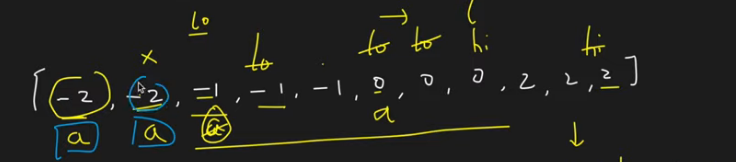 lo
x lo lo → lo hi hi
[ -2, -2, -1, -1, -1, 0, 0, 0, 2, 2, 2 ]
a a a a ↓